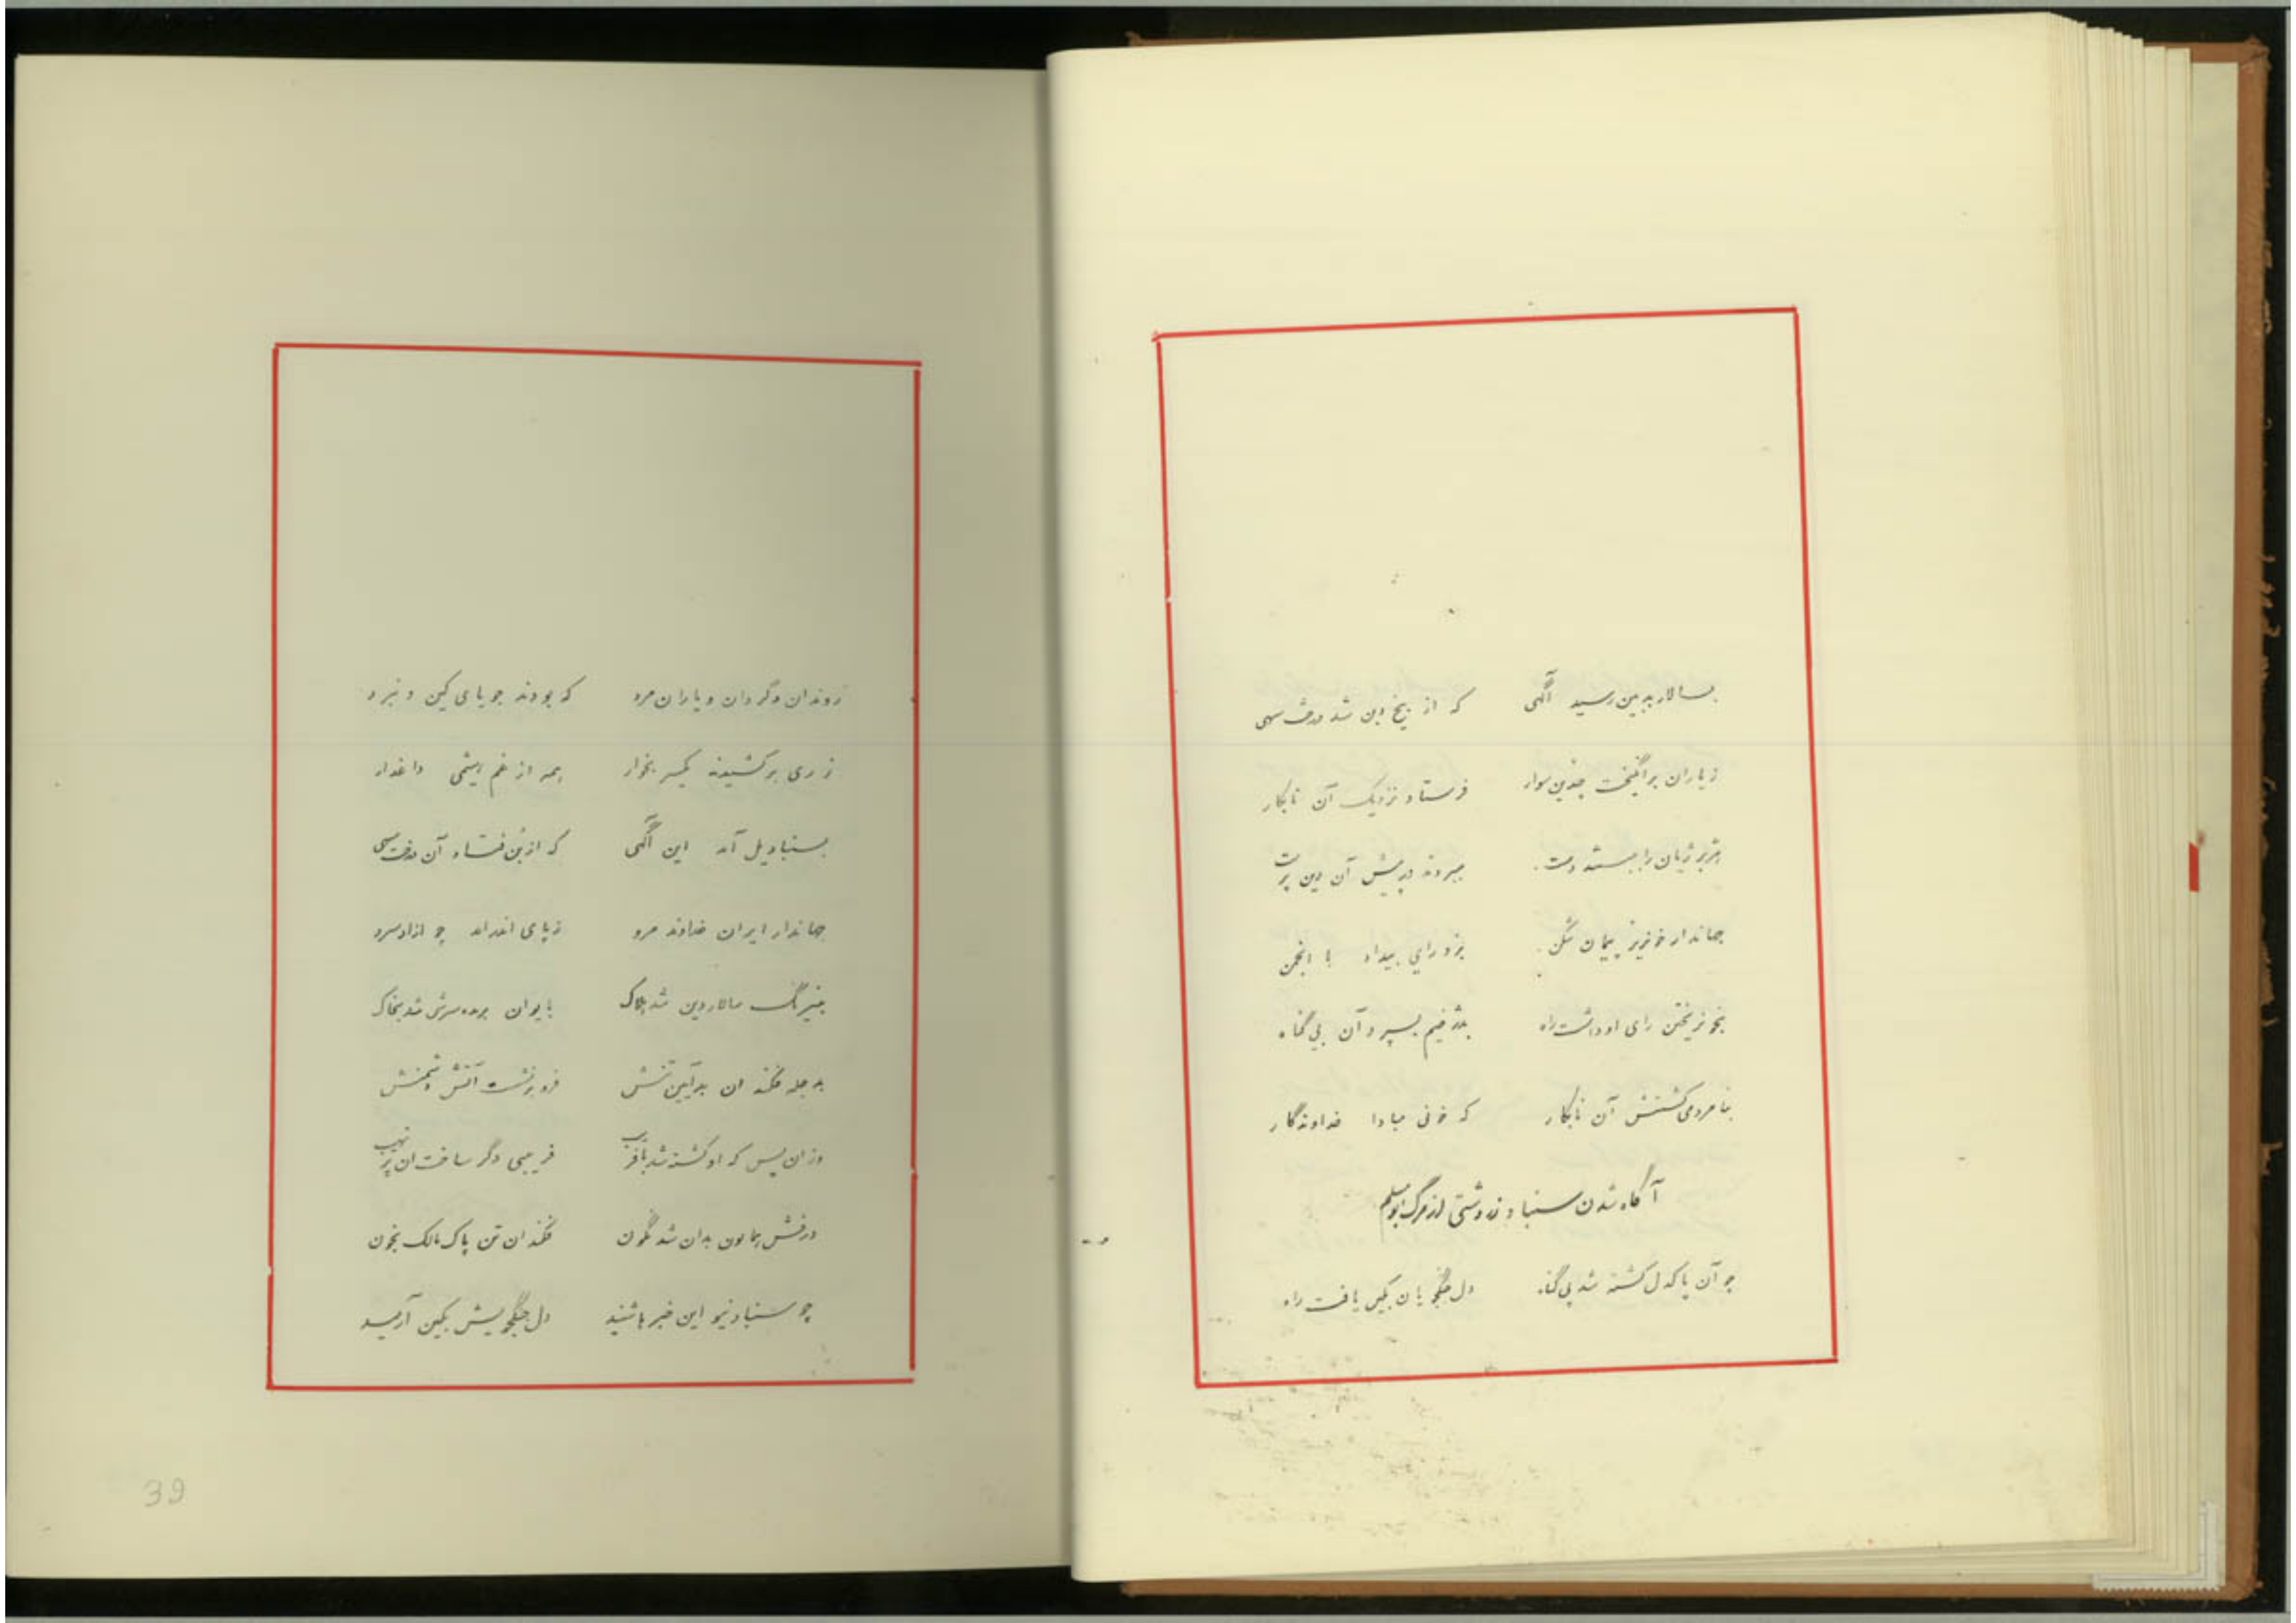 بسالار بدبین رسید آگهی که از بیخ وبن شد درخت سهی
زیاران برانگیخت چندین سوار فرستاد نزدیک آن نابکار
هژبر ژیان را ببستند دست ببردند در پیش آن دین پرست
جهاندار خونریز پیمان شکن بزد رای بیداد با انجمن
بخونریختن رای او داشت راه بدژخیم بسپرد آن بی گناه
بنامردمی کشتش آن نابکار که خونی مبادا خداوندگار
آگاه شدن سنباد زردشتی از مرگ ابومسلم
چو آن پاکدل کشته شد بی گناه دل جنگجویان بکین یافت راه
زوندان وگردان ویاران مرد که بودند جویای کین و نبرد
زری برکشیدند یکسر بخوار همه از غم داغدار
بسنباد یل آمد این آگهی که از بن فتاد آن درخت سهی
جهاندار ایران خداوند مرو زپای اندر آمد چو آزاد سرو
بنیرنگ سالار دین شد هلاک بایوان برده سرش شد بخاک
بدجله فکند ان بدآیین تنش فرو برنشست آتش دشمنش
وزان پس که او کشته شد بافریب فریبی دگر ساخت ان پرنهیب
درفش همایون بدان شد نگون فکند ان تن پاک مالک بخون
چو سنباد نیو این خبرها شنید دل جنگجویش بکین آرمید
39